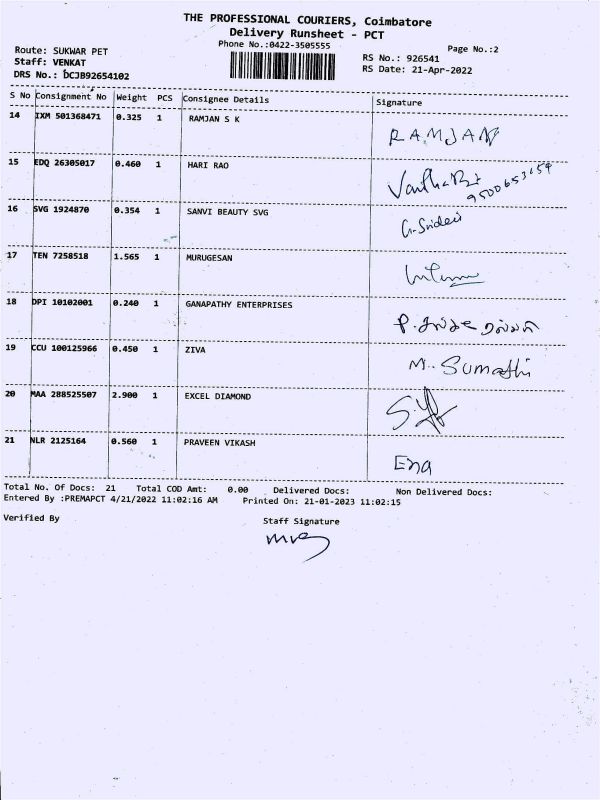 THE PROFESSIONAL COURIERS, Coimbatore
Delivery Runsheet - PCT
Phone No.:0422-3505555
Page No.:2
Route: SUKWAR PET
Staff: VENKAT
DRS No.: DCJB92654102
RS No.: 926541
RS Date: 21-Apr-2022
S No Consignment No Weight PCS Consignee Details Signature
14 IXM 501368471 0.325 1 RAMJAN S K RAMJAN
15 EDQ 26305017 0.460 1 HARI RAO
16 SVG 1924870 0.354 1 SANVI BEAUTY SVG G. Sridevi
17 TEN 7258518 1.565 1 MURUGESAN
18 DPI 10102001 0.240 1 GANAPATHY ENTERPRISES
19 CCU 100125966 0.450 1 ZIVA M. Sumathi
20 MAA 288525507 2.900 1 EXCEL DIAMOND
21 NLR 2125164 0.560 1 PRAVEEN VIKASH Ena
Total No. Of Docs: 21 Total COD Amt: 0.00 Delivered Docs: Non Delivered Docs:
Entered By :PREMAPCT 4/21/2022 11:02:16 AM Printed On: 21-01-2023 11:02:15
Verified By Staff Signature